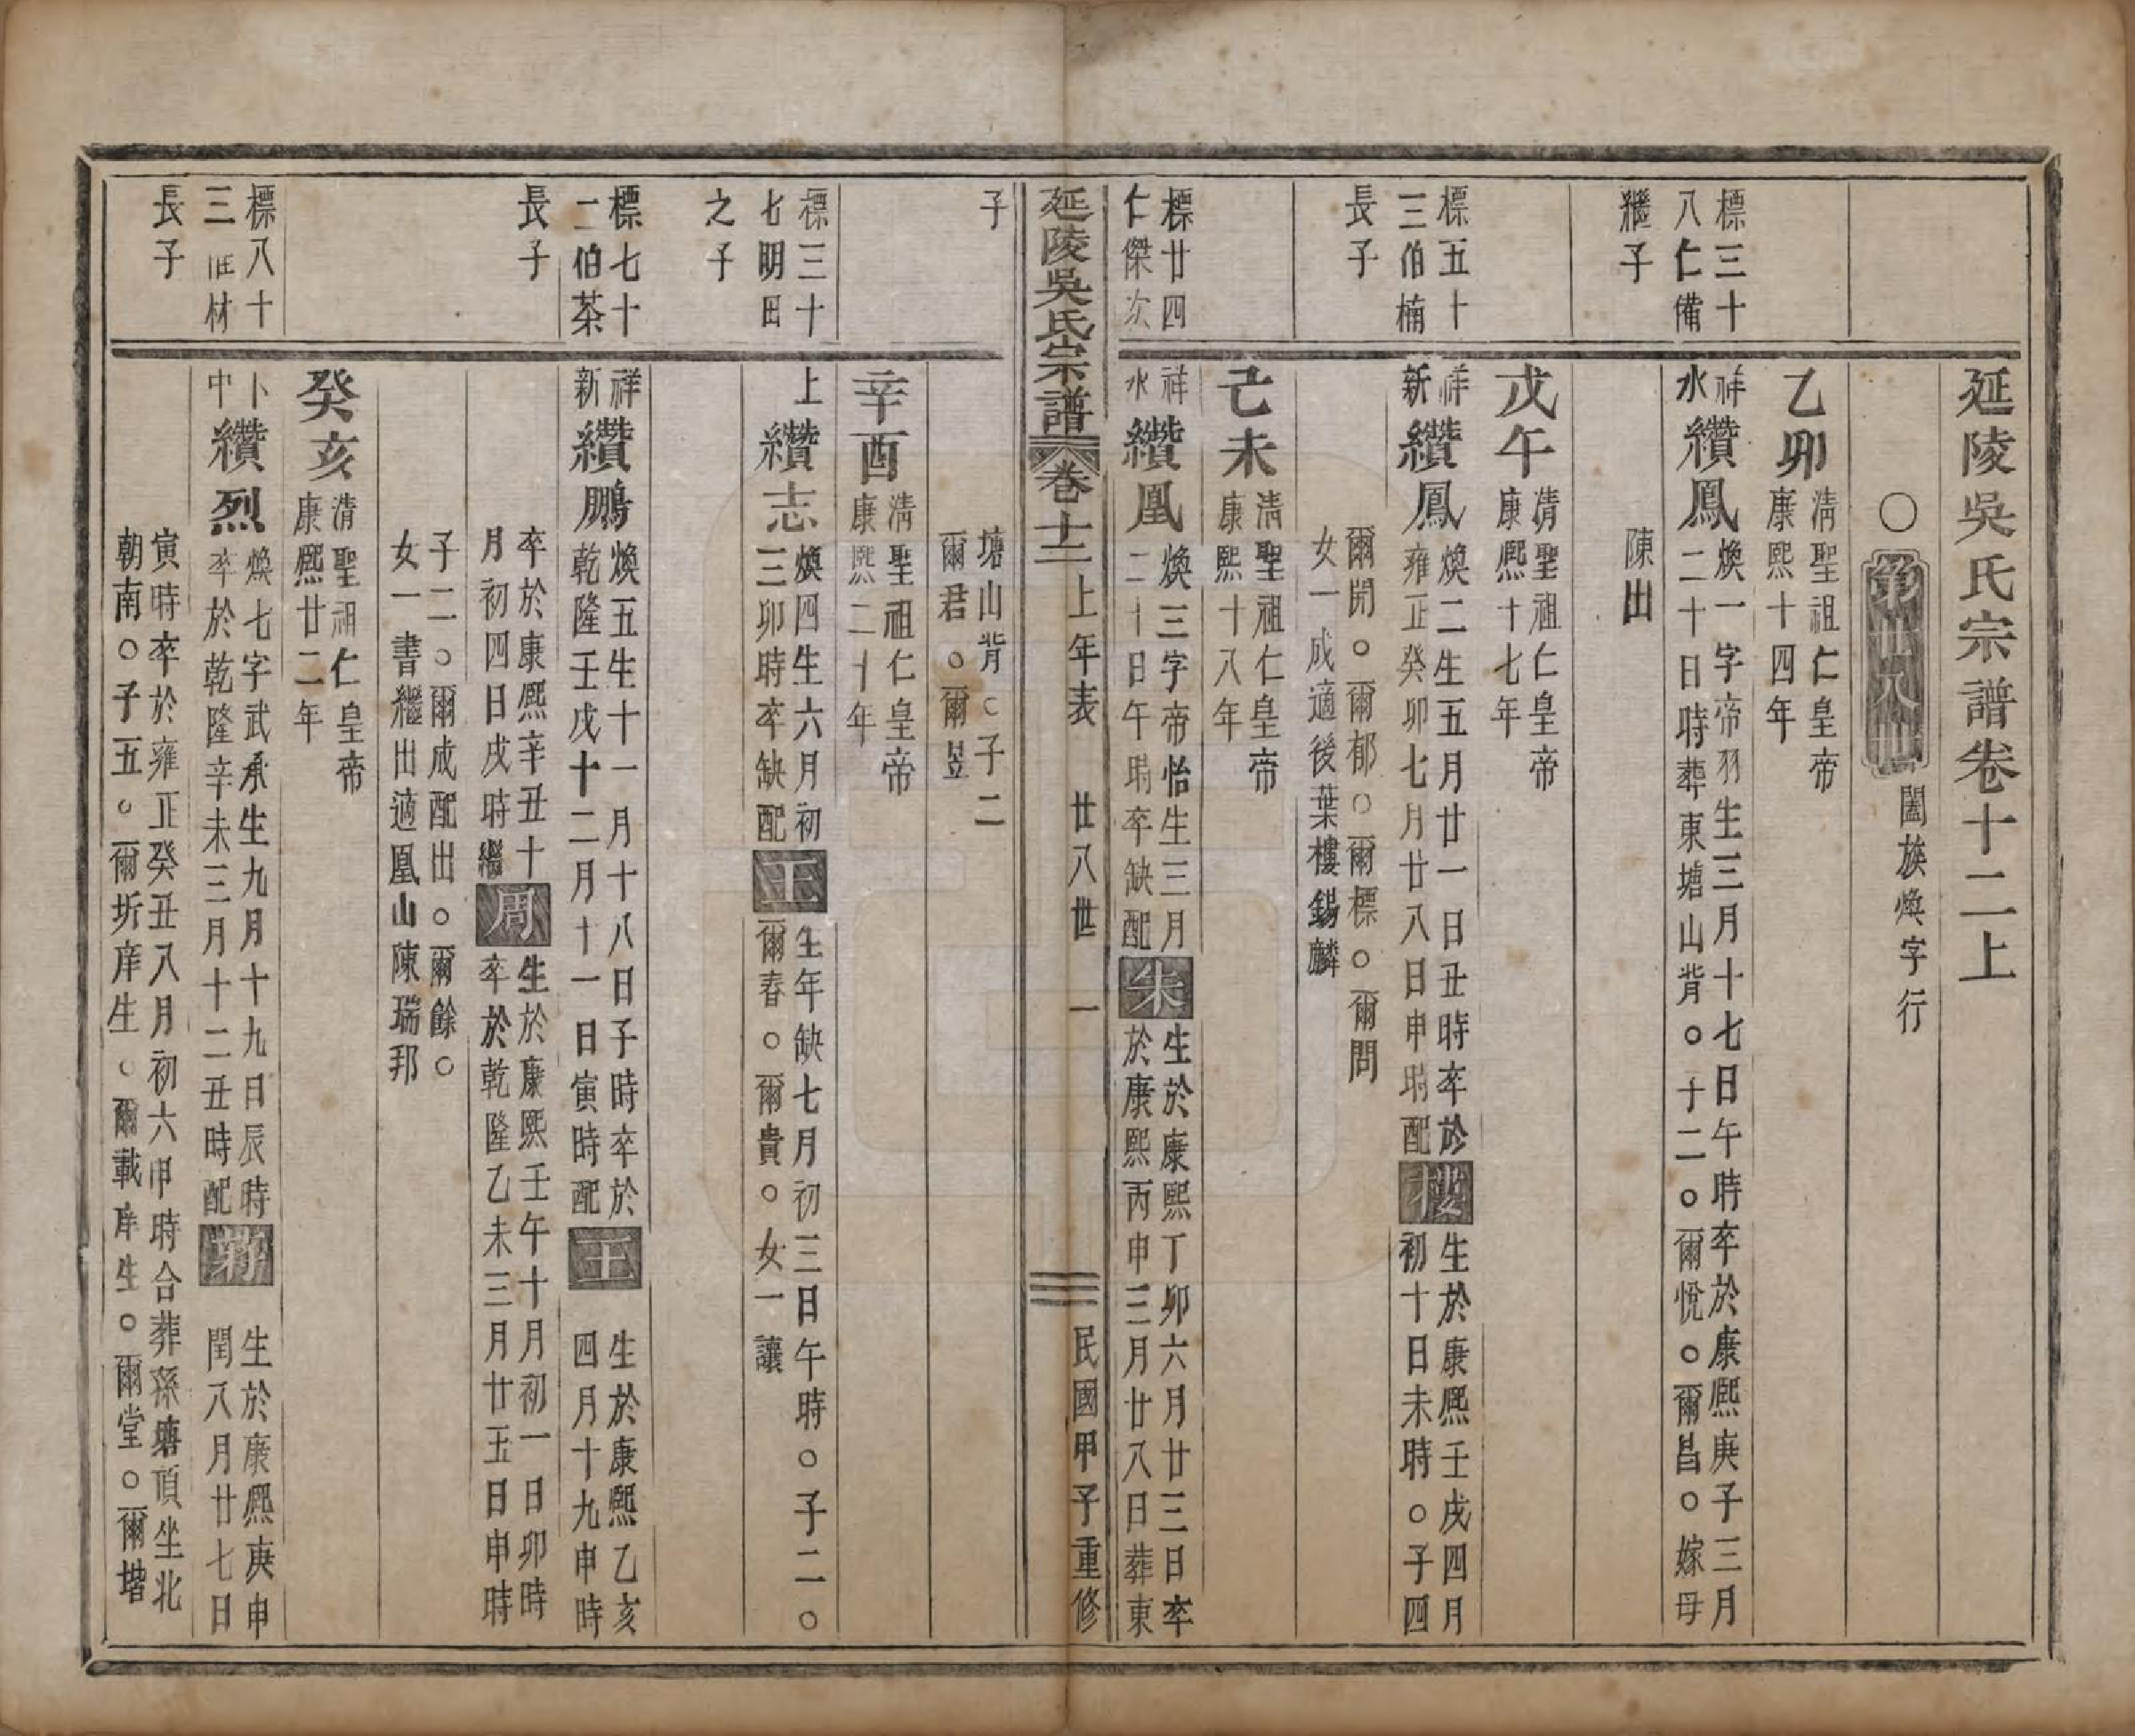 延陵吳氏宗譜卷十二上
○第廿八世
闔族煥字行
乙卯
清聖祖仁皇帝
康熙十四年
標三十
八仁備
繼子
祥
水
纘鳳
煥一字帝羽生三月十七日午時卒於康熙庚子三月
二十日時葬東塘山背○子二○爾悅○爾昌○嫁母
陳出
戊午
清聖祖仁皇帝
康熙十七年
標五十
三伯楠
長子
祥
新
纘鳳
煥二生五月廿一日丑時卒於
雍正癸卯七月廿八日申時配
樓
生於康熙壬戌四月
初十日未時○子四
爾開○爾郁○爾標○爾問
女一成適後葉樓錫麟
己未
清聖祖仁皇帝
康熙十八年
標廿四
仁傑次
祥
水
纘凰
煥三字帝怡生三月
二十日午時卒缺配
朱
生於康熙丁卯六月廿三日卒
於康熙丙申三月廿八日葬東
延陵吳氏宗譜
卷十二上年表 廿八世 一
民國甲子重修
子
塘山背○子二
爾君○爾昱
辛酉
清聖祖仁皇帝
康熙二十年
標三十
七明田
之子
上
纘志
煥四生六月初
三卯時卒缺配
王
生年缺七月初三日午時○子二○
爾春○爾貴○女一讓
標七十
二伯茶
長子
祥
新
纘鵬
煥五生十一月十八日子時卒於
乾隆壬戌十二月十一日寅時配
王
生於康熙乙亥
四月十九申時
卒於康熙辛丑十
月初四日戌時繼
周
生於康熙壬午十月初一日卯時
卒於乾隆乙未三月廿五日申時
子二○爾成配出○爾餘○
女一書繼出適鳳山陳瑞邦
癸亥
清聖祖仁皇帝
康熙廿二年
標八十
三 材
長子
卜
中
纘烈
煥七字武承生九月十九日辰時
卒於乾隆辛未三月十二丑時配
生於康熙庚申
閏八月廿七日
寅時卒於雍正癸丑八月初六甲時合葬孫塘頂坐北
朝南○子五○爾圻庠生○爾載庠生○爾堂○爾堦